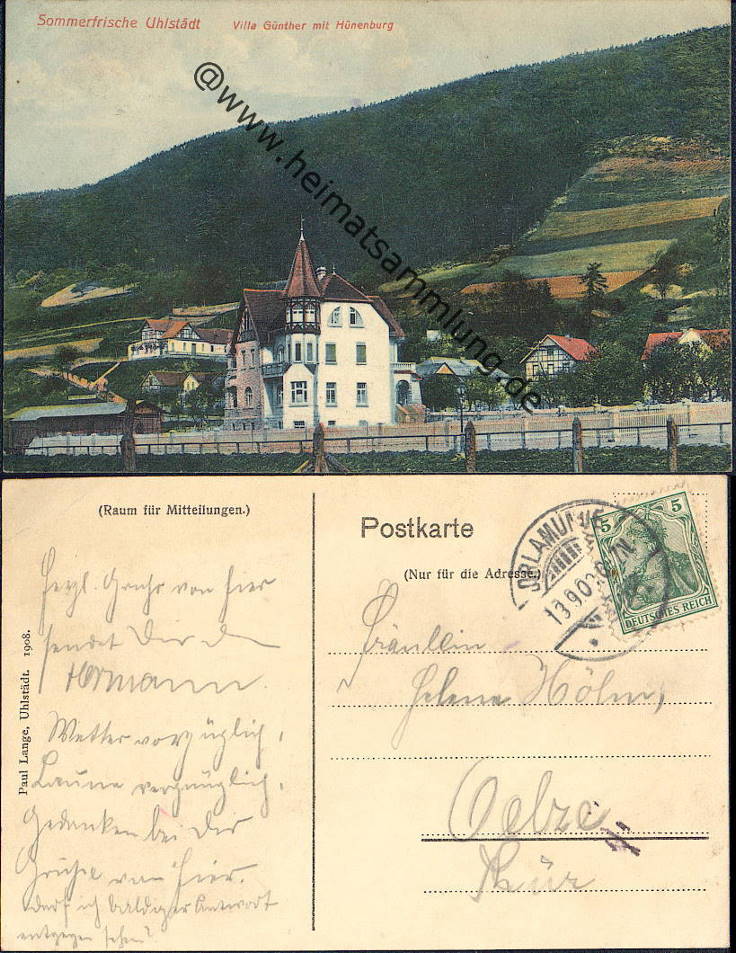 Sommerfrische Uhlstädt Villa Günther mit Hünenburg
@www.heimatsammlung.de
(Raum für Mitteilungen.)
Postkarte
(Nur für die Adresse.)
ORLAMÜNDE
13.9.09
5 5
DEUTSCHES REICH
Herzl. Gruß von hier
sendet Dir
Hermann.
Wetter vorzüglich,
Laune vergnüglich,
Gedanken bei Dir
Grüße von hier.
darf ich baldiger Antwort
entgegen sehen?
Paul Lange, Uhlstädt. 1908.
Fräulein
Helene
Oelze
Thür